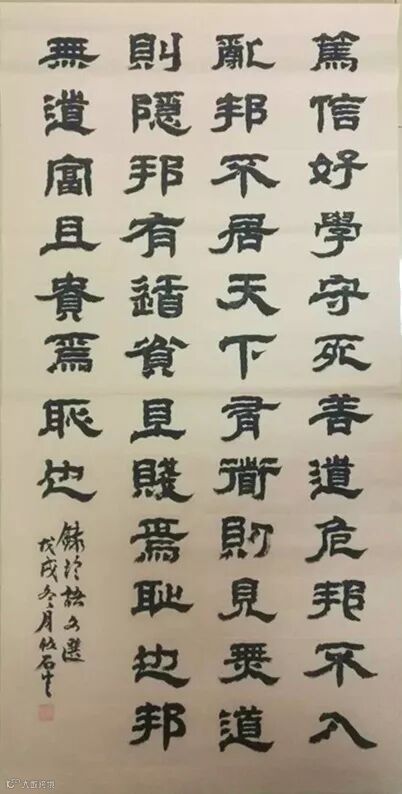 篤信好學守死善道危邦不入
亂邦不居天下有衜則見無道
則隱邦有道貧且賤焉恥也邦
無道富且貴焉恥也
錄論語文選
戊戌冬月
大数跨境